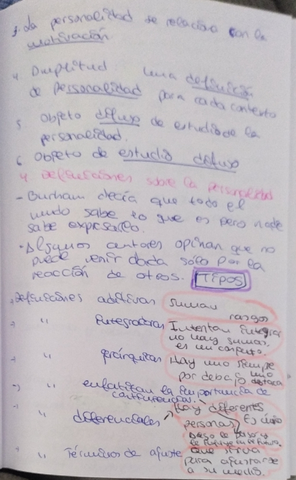 3. La personalidad se relaciona con la
motivación
4. Amplitud una definición
de personalidad para cada contexto
5. Objeto difuso de estudio de la
personalidad.
6 Objeto de estudio difuso
4 definiciones sobre la Personalidad
- Burham decía que todo el
mundo sabe lo que es pero nadie
sabe expresarlo.
- Algunos autores opinan que no
puede venir dada sólo por la
reacción de otros. TIPOS
Definiciones aditivas Suman
rasgos
" " Integradoras Intentan integrar
no hay sumas
es un conjunto.
" " Jerárquicas Hay uno siempre
por debajo
" " enfatizan la importancia de
" " diferenciales Hay diferentes
personas
" " Términos de ajuste que sirva
para ajustarse
a su medio.